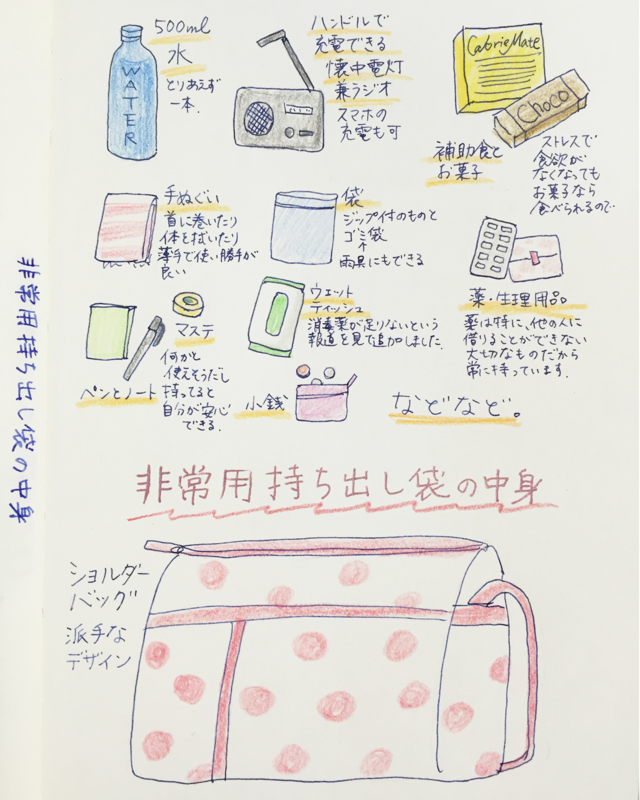 500ml
水
とりあえず
一本.
WATER
ハンドルで
充電できる
懐中電灯
兼ラジオ
スマホの
充電も可
CalorieMate
Choco
補助食と
お菓子
ストレスで
食欲が
なくなっても
お菓子なら
食べられるので
手ぬぐい
首に巻いたり
体を拭いたり
薄手で使い勝手が
良い
袋
ジップ付のものと
ゴミ袋
↑
雨具にもできる
薬・生理用品。
薬は特に、他の人に
借りることができない
大切なものだから
常に持っています.
マステ
ペンとノート
何かと
使えそうだし
持ってると
自分が安心
できる.
ウェット
ティッシュ
消毒薬が足りないという
報道を見て追加しました.
小銭
などなど。
非常用持ち出し袋の中身
ショルダー
バッグ
派手な
デザイン
非常用持ち出し袋の中身